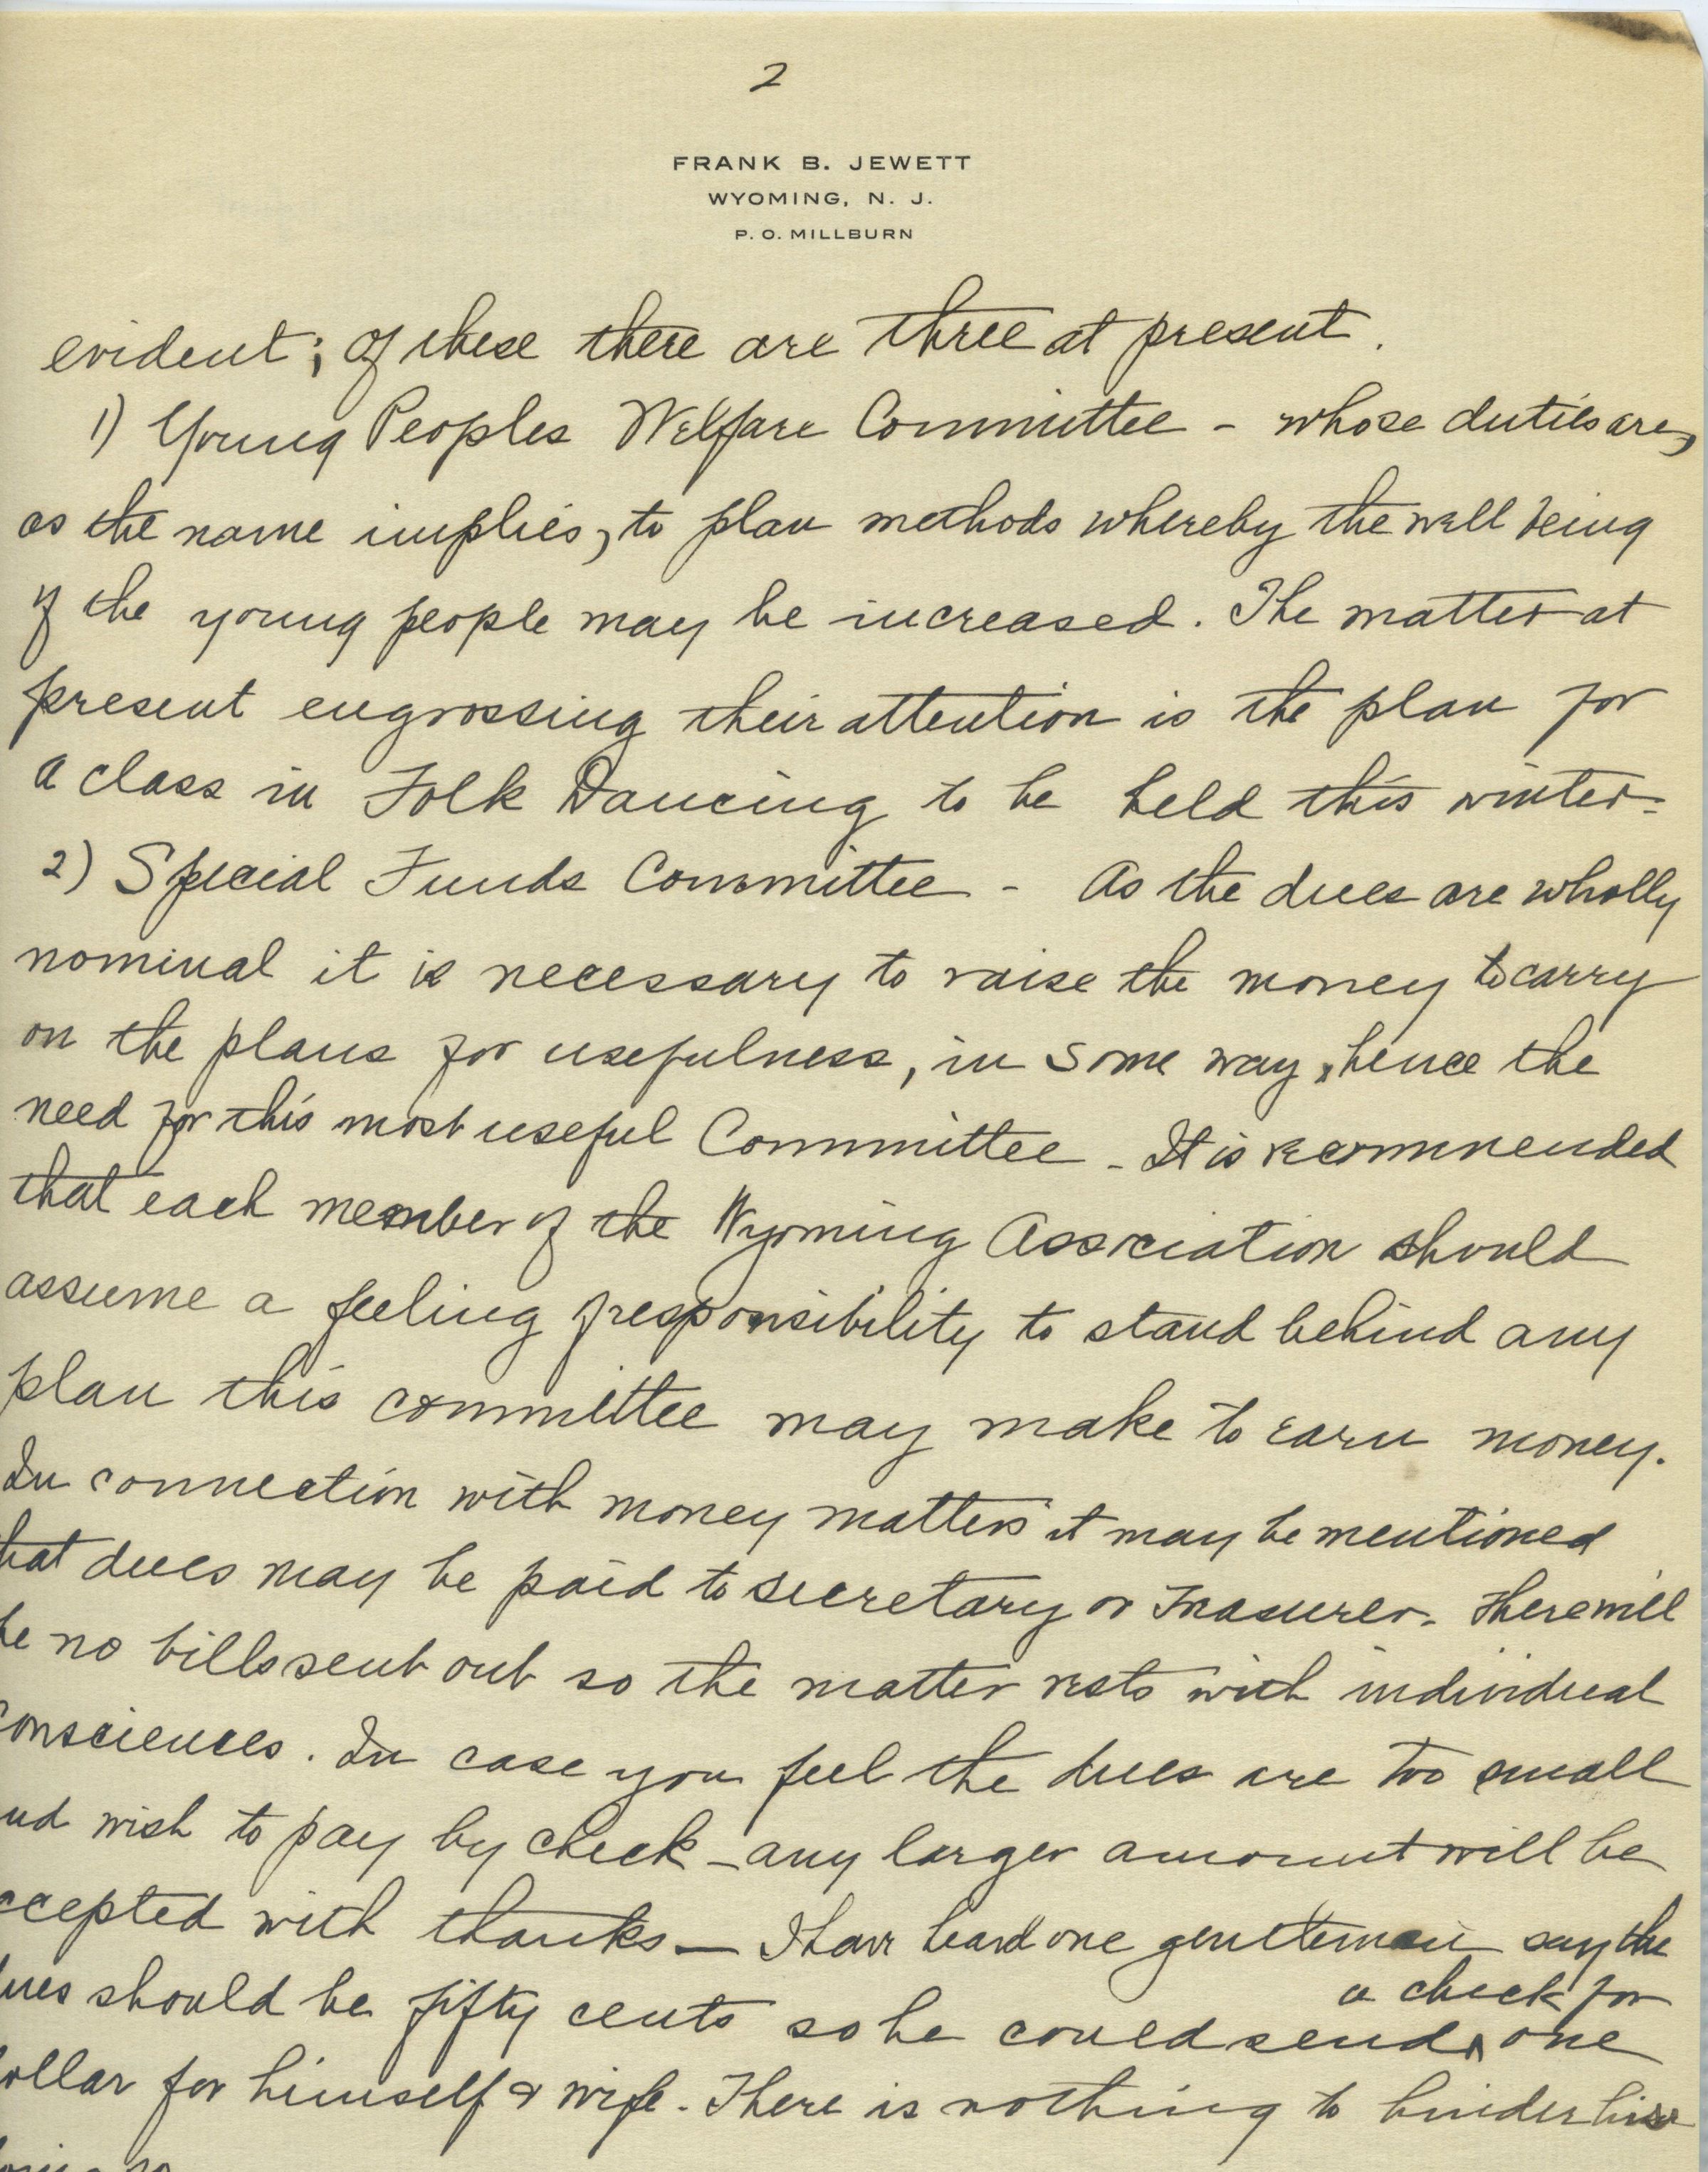 2
FRANK B. JEWETT
WYOMING, N. J.
P. O. MILLBURN
evident; of these there are three at present.
1) Young Peoples Welfare Committee - whose duties are,
as the name implies, to plan methods whereby the well being
of the young people may be increased. The matter at
present engrossing their attention is the plan for
a class in Folk Dancing to be held this winter.
2) Special Funds Committee - As the dues are wholly
nominal it is necessary to raise the money to carry
on the plans for usefulness, in some way, hence the
need for this most useful Committee - It is recommended
that each member of the Wyoming Association should
assume a feeling of responsibility to stand behind any
plan this committee may make to earn money.
In connection with money matters it may be mentioned
hat dues may be paid to secretary or Treasurer. There will
be no bills sent out so the matter rests with individual
consciences. In case you feel the dues are too small
nd wish to pay by check - any larger amount will be
ccepted with thanks - I have heard one gentleman say the
a check for
ues should be fifty cents so he could send ^ one
ollar for himself & wife. There is nothing to hinder his
so